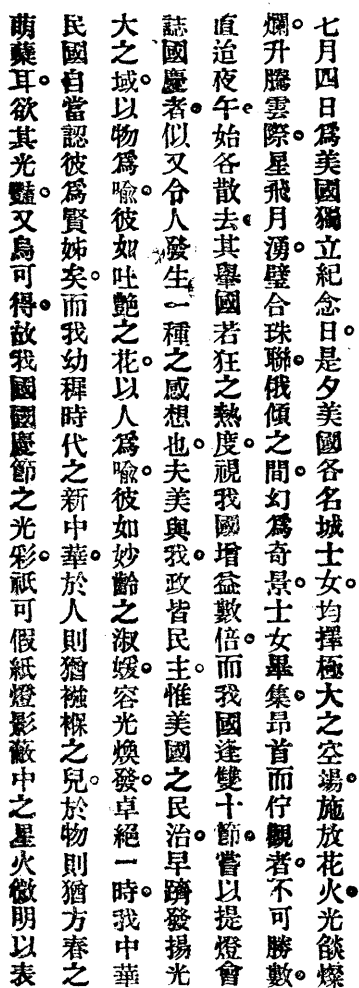 七月四日爲美國獨立紀念日。是夕美國各名城士女。均擇極大之空場。施放花火。光燄燦
爛。升騰雲際。星飛月湧。璧合珠聯。俄傾之間。幻爲奇景。士女畢集。昂首而佇觀者。不可勝數。
直迨夜午。始各散去。其舉國若狂之熱度。視我國增益數倍。而我國逢雙十節。嘗以提燈會
誌國慶者。似又令人發生一種之感想也。夫美與我。政皆民主。惟美國之民治。早躋發揚光
大之域。以物爲喩。彼如吐艷之花。以人爲喩。彼如妙齡之淑媛。容光煥發。卓絕一時。我中華
民國自當認彼爲賢姊矣。而我幼稺時代之新中華。於人則猶襁褓之兒。於物則猶方春之
萌蘖耳。欲其光豔。又烏可得。故我國國慶節之光彩。祇可假紙燈影蔽中之星火微明以表